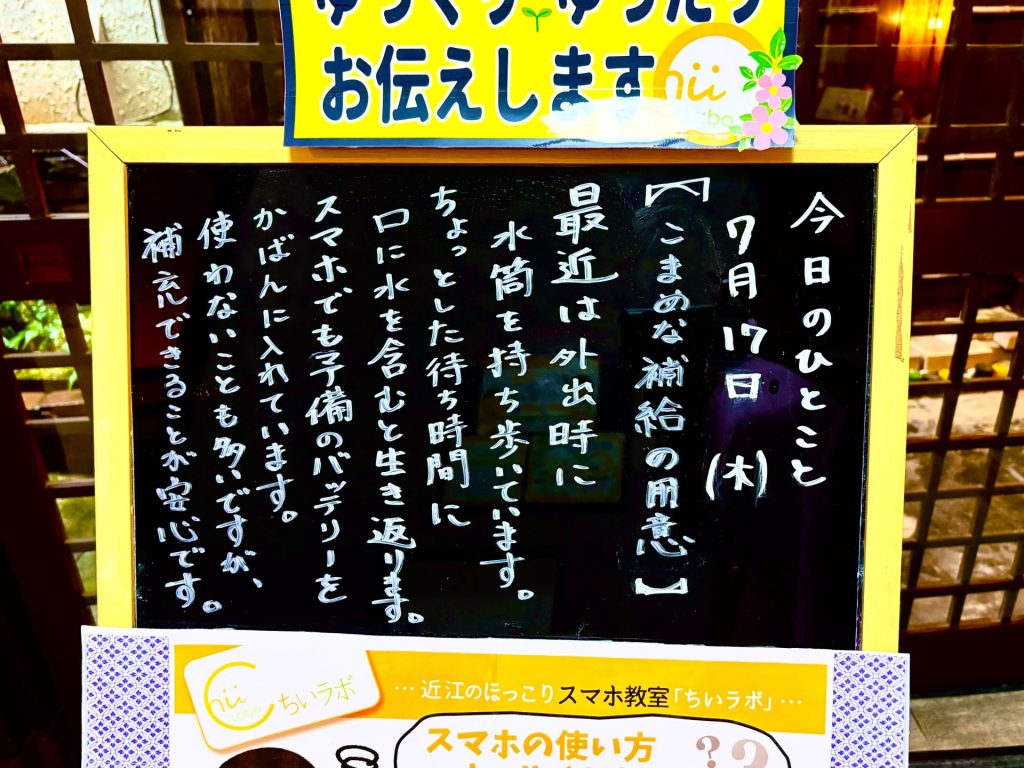 ゆっくり ゆったり
お伝えします
hii
Labo
今日のひとこと
7月17日(木)
【こまめな補給の用意】
最近は外出時に
水筒を持ち歩いています。
ちょっとした待ち時間に
口に水を含むと生き返ります。
スマホでも予備のバッテリーを
かばんに入れています。
使わないことも多いですが、
補充できることが安心です。
Chii
Labo
ちいラボ
…近江のほっこりスマホ教室「ちいラボ」…
スマホの使い方
??